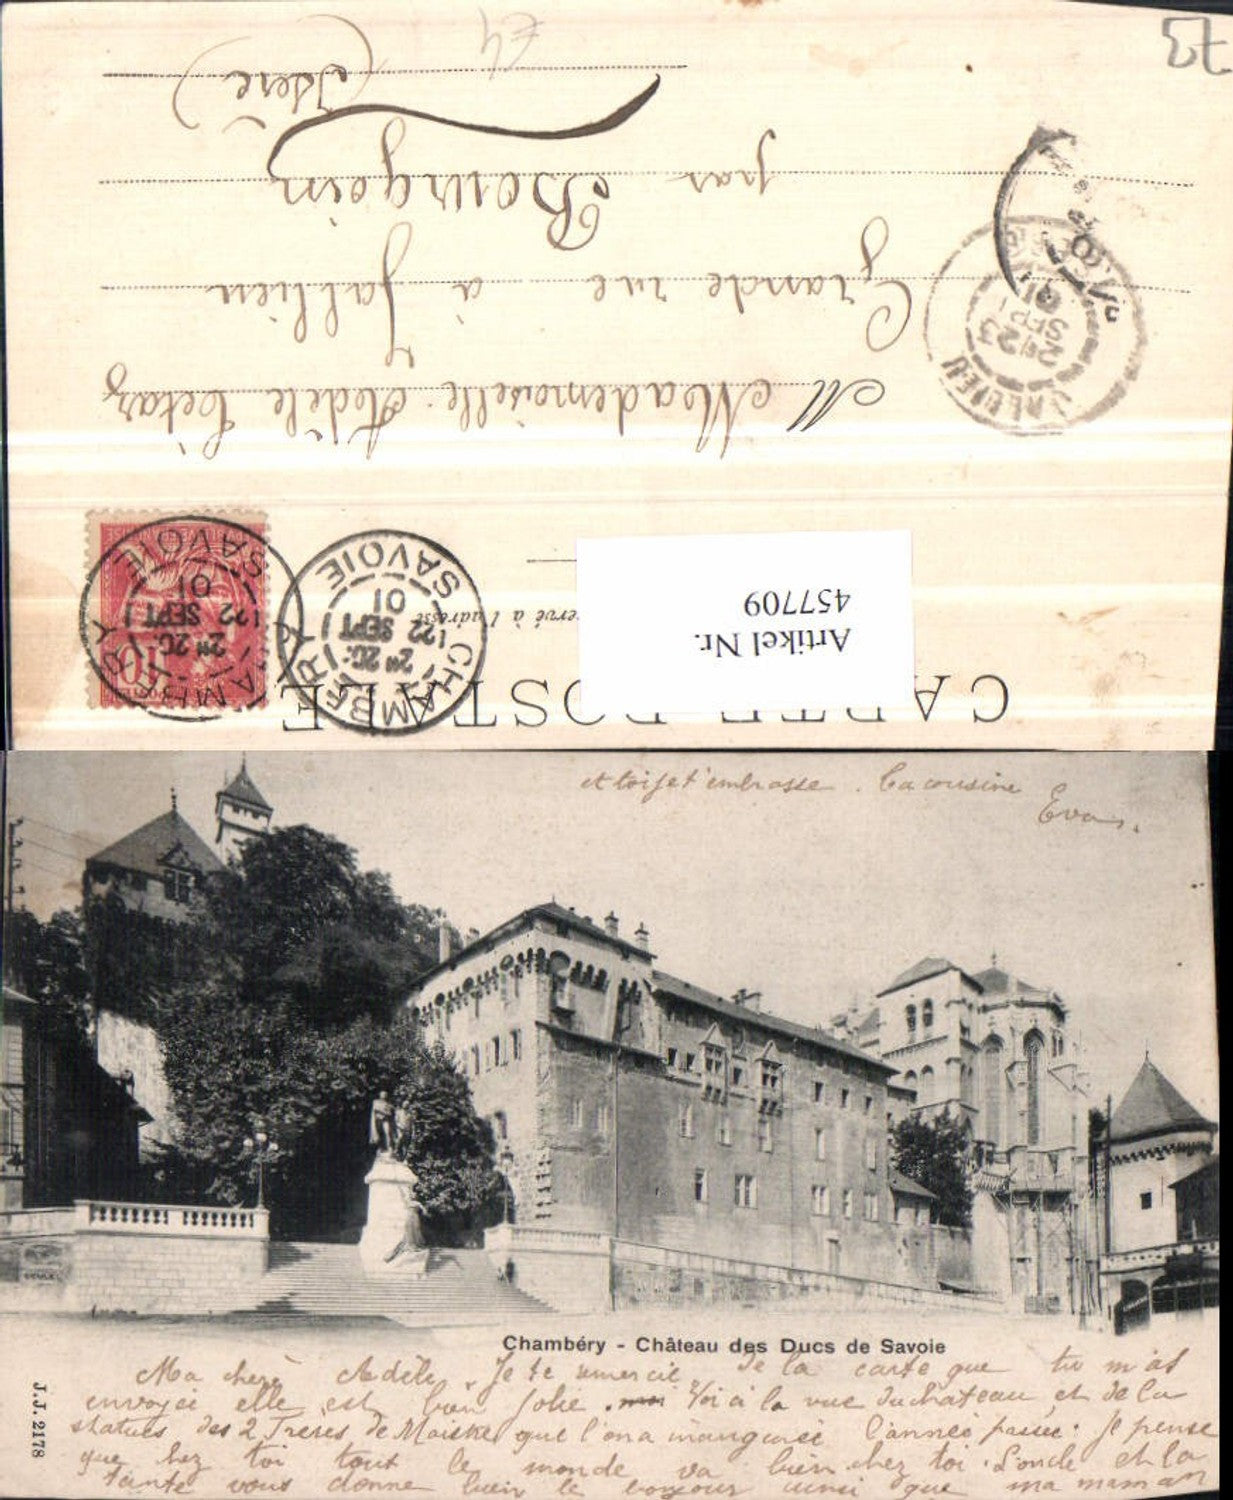 73
CARTE POSTALE
Artikel Nr.
457709
ervé à l'adresse
CHAMBERY
2E 20
22
SEPT
01
SAVOIE
AMBERY
2E 20
22
SEPT
01
SAVOIE
10
M Mademoiselle Adèle
Grande rue à Jallieu
par
Bourgoin
(Isère)
23
SEPT
01
et toi je t'embrasse. Ta cousine
Eva.
Chambéry - Château des Ducs de Savoie
Ma chère Adèle, Je te remercie de la carte que tu m'as
envoyée elle est bien jolie. Voici la vue du château et de la
statues des 2 Frères de Maistre que l'on a inauguréi l'année passée. Je pense
que chez toi tout le monde va bien chez toi. L'oncle et la
tante vous donne bien le bonjour ainsi que ma maman
J.J. 2178